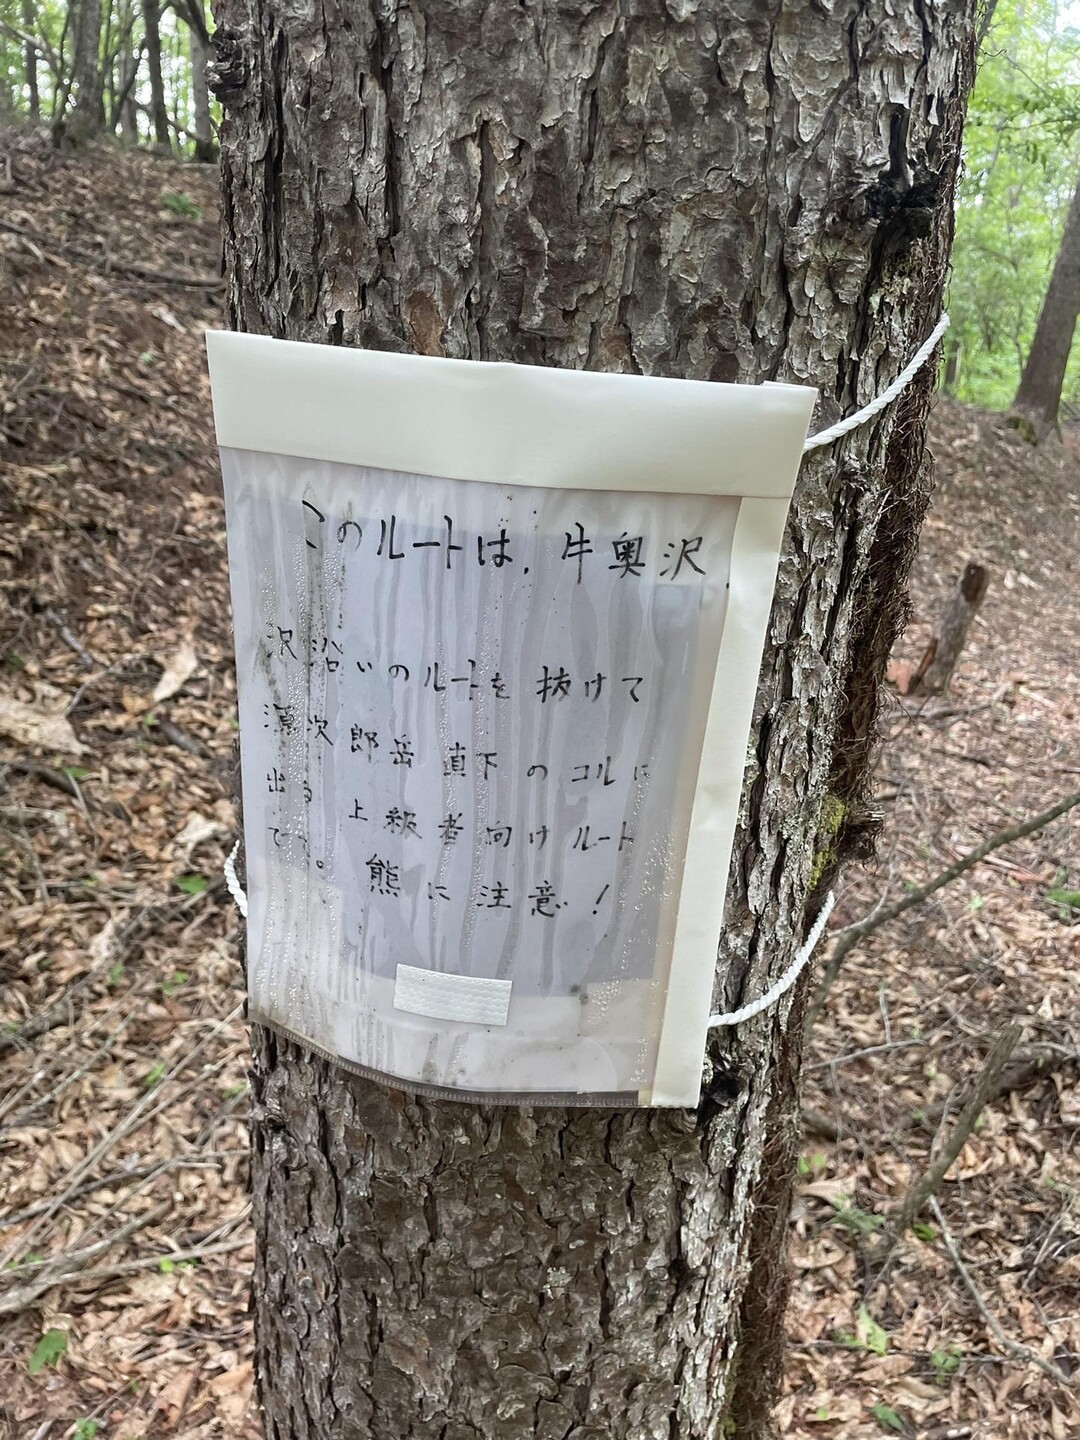 このルートは、牛奥沢
沢沿いのルートを抜けて
源次郎岳直下のコルに
出る 上級者向けルート
です。 熊に注意!